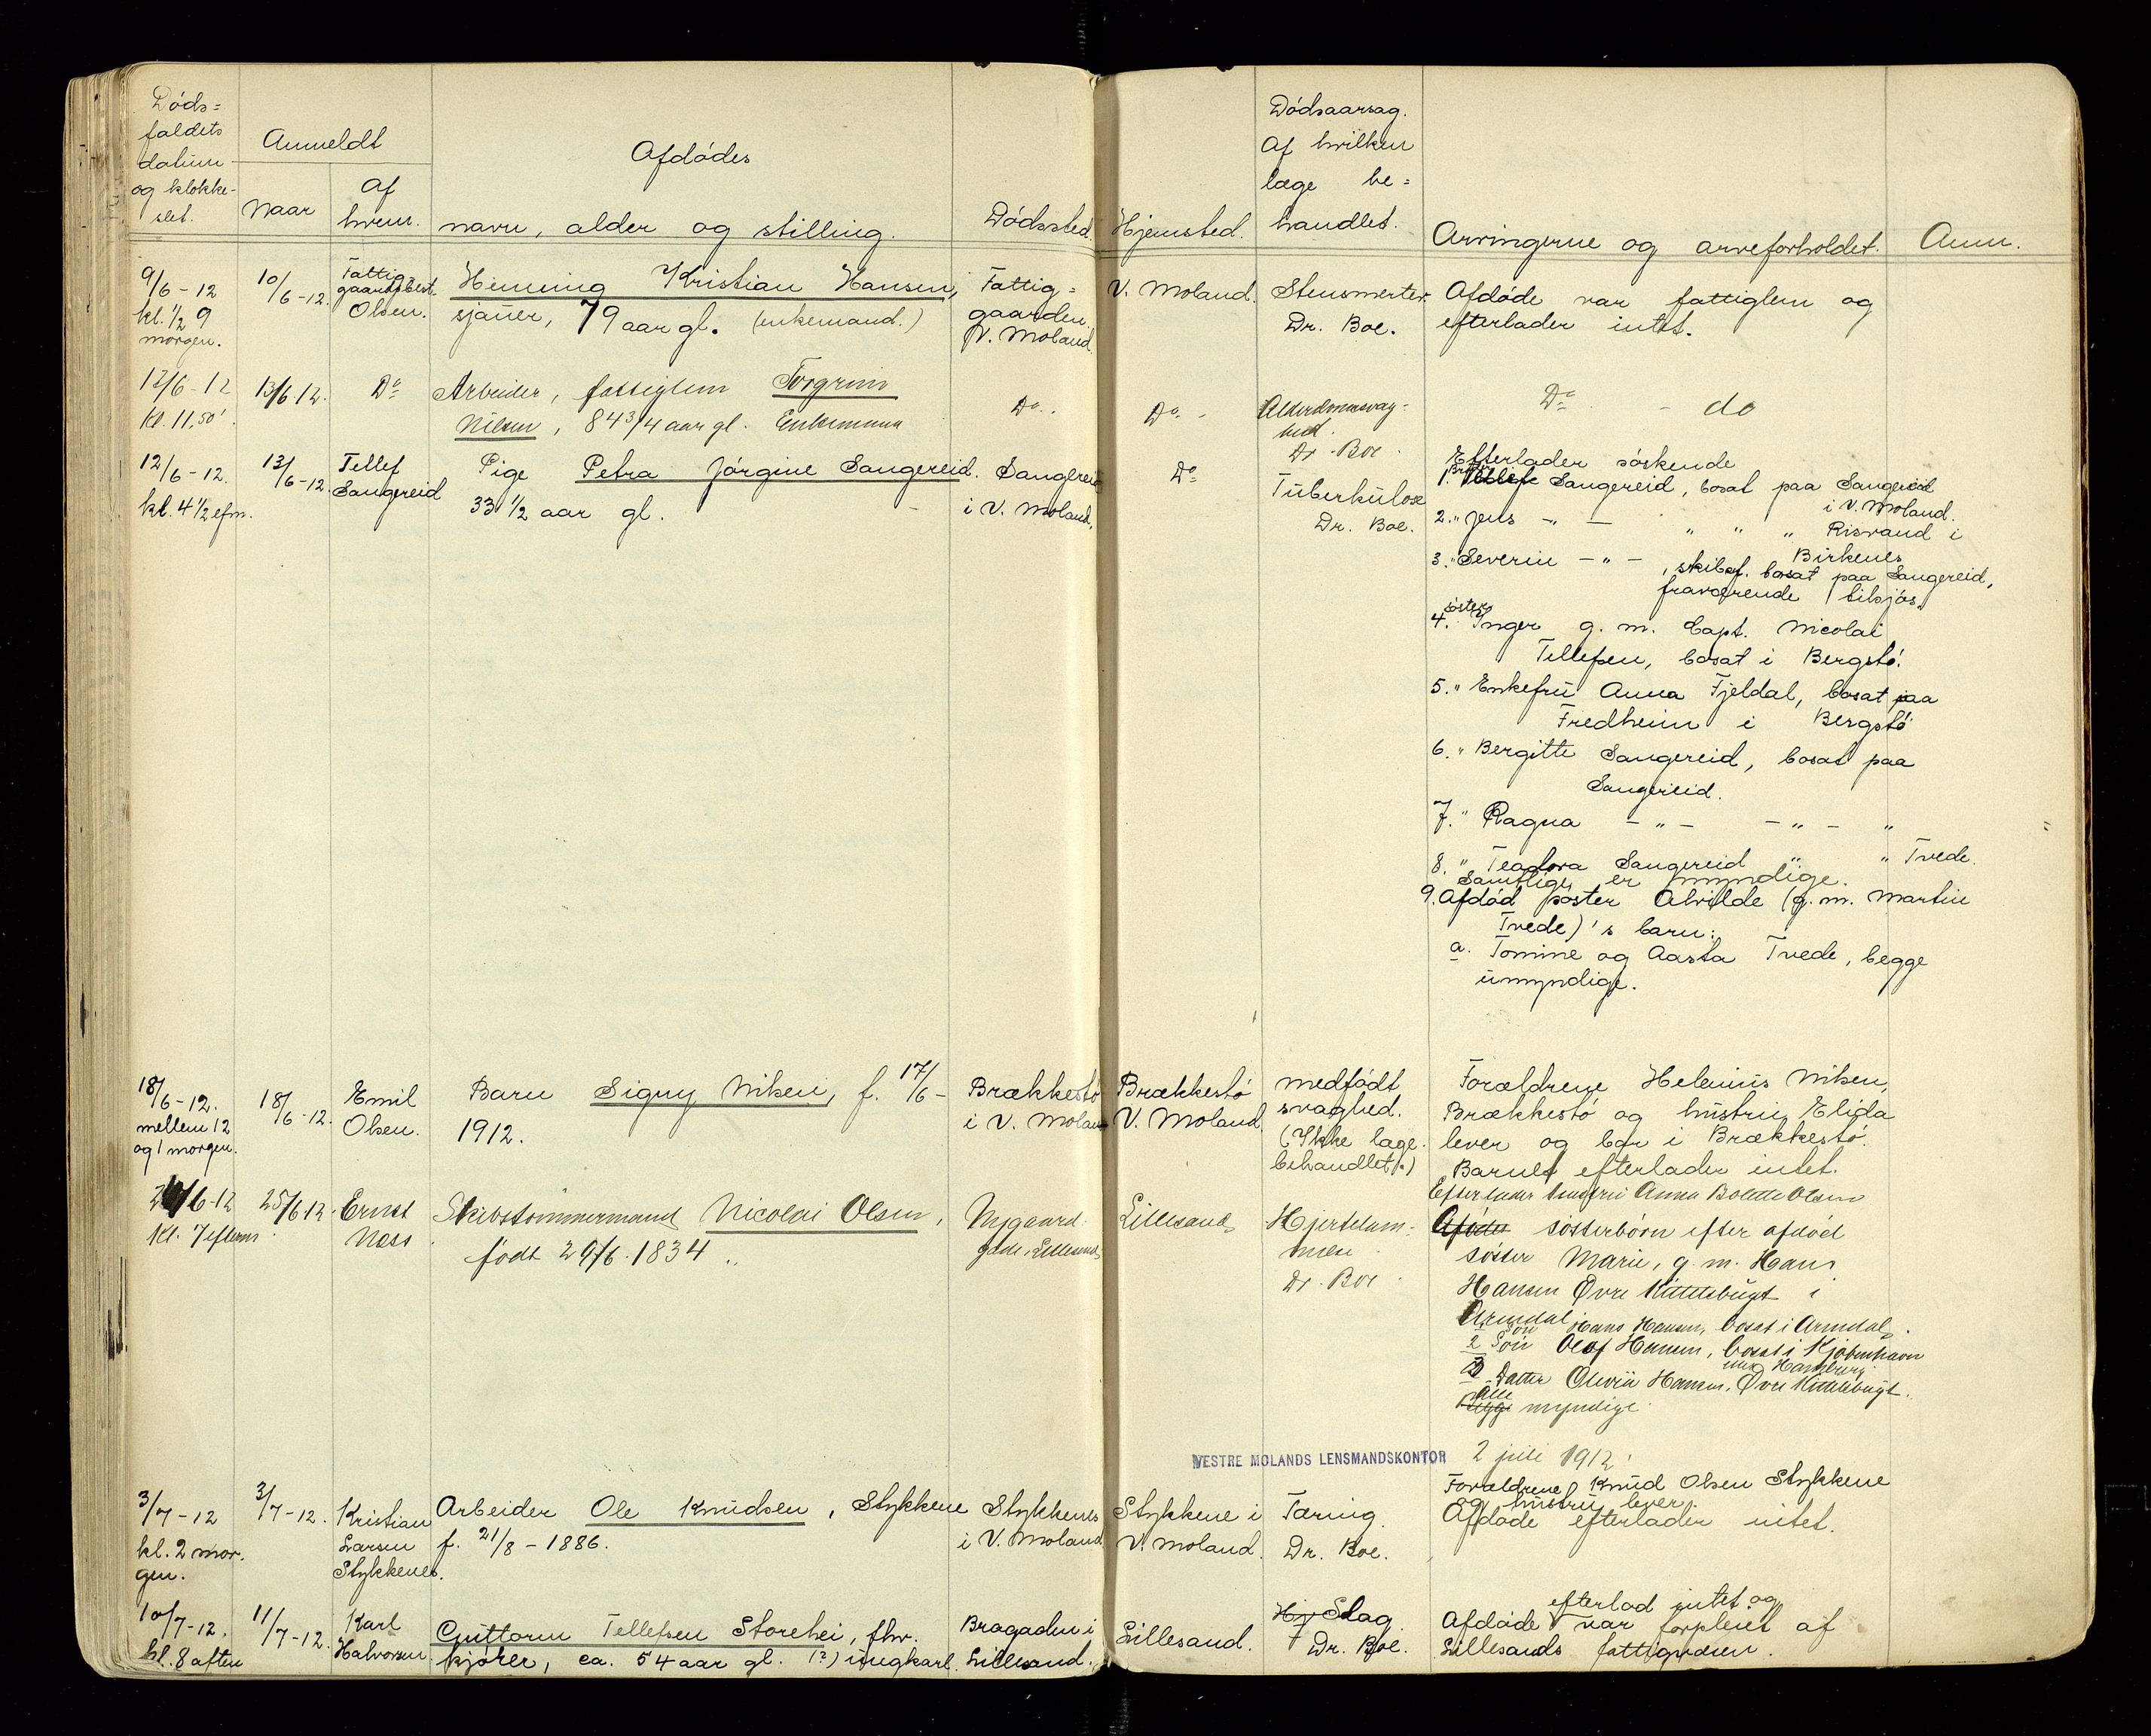 Døds=
faldets
datum
og klokke-
slet.
Anmeldt
Naar
Af
hvem.
Afdødes
navn, alder og stilling.
Dødssted.
Hjemsted.
Dødsaarsag.
Af hvilken
læge be=
handlet.
Arvingerne og arveforholdet.
Anm.
9/6-12
kl. 1/2 9
morgen.
10/6-12.
Fattig
gaardsbest.
Olsen.
Henning Kristian Hansen,
sjauer, 79 aar gl. (enkemand.)
Fattig=
gaarden
V. Moland.
V. Moland.
Stensmerter.
Dr. Boe.
Afdøde var fattiglem og
efterlader intet.
12/6-12
Kl. 11,50'
13/6 12.
Do
Arbeider, fattiglem Torgrim
Nilsen, 84 3/4 aar gl. Enkemann
Do.
Do -
Alderdomssvag-
hed.
Dr. Boe.
Do - do
12/6-12.
kl. 4 1/2 efm.
13/6-12.
Tellef
Sangereid
Pige Petra Jørgine Sangereid.
33 1/2 aar gl.
Sangereid
i V. Moland.
Do
Tuberkulose
Dr. Boe.
Efterlader søskende
1. Broder Tellef Sangereid, bosat paa Sangereid
i V. Moland.
2. " Jens - " - " " " Risvand i
Birkenes
3. " Severin - " - , skibsf. bosat paa Sangereid,
fraværende tilsjøs.
4. søster Inger g. m. Capt. Nicolai
Tellefsen, bosat i Bergstø.
5. " Enkefru Anna Fjeldal, bosat paa
Fredheim i Bergstø
6. " Bergitte Sangereid, bosat paa
Sangereid.
7. " Ragna - " - - " - "
8. " Teadora Sangereid " " Tvede.
Samtlige er myndige.
9. Afdød søster Alvilde (g. m. Martin
Tvede)'s barn:
a. Tomine og Aasta Tvede, begge
umyndige.
18/6-12.
mellem 12
og 1 morgen.
18/6-12.
Emil
Olsen.
Barn Signy Nilsen, f. 17/6-
1912.
Brækkestø
i V. Moland
Brækkestø
V. Moland
medfødt
svaghed.
(Ikke læge-
behandlet.)
Forældrene Helenius Nilsen,
Brækkestø og hustru Elida
lever og bor i Brækkestø.
Barnet efterlader intet.
24/6-12
Kl. 7 efterm.
25/6 12.
Ernst
Næss
Skibstømmermand Nicolai Olsen,
født 29/6. 1834
Nygaard-
gade, Lillesand
Lillesand
Hjertelam-
melse
Dr. Boe
Efterlader hustru Anna Bolette Olsen
Afdøde søsterbørn efter afdød
søster Marie, g. m. Hans
Hansen Øvre Kittelsbugt i
Arendal
Søn Hans Hansen, bosat i Arendal.
2 Søn Olaf Hansen, bosat i Kjøbenhavn
3 Datter Olevie Hansen, Øvre Kittelsbugt.
Begge Alle myndige
VESTRE MOLANDS LENSMANDSKONTOR 2 juli 1912
3/7-12
kl. 2 mor.
gen.
3/7-12.
Kristian
Larsen
Stykkenes.
Arbeider Ole Knudsen, Stykkene
f. 21/8-1886.
Stykkenes
i V. Moland
Stykkene i
V. Moland.
Tæring.
Dr. Boe.
Forældrene Knud Olsen Stykkene
og hustru lever.
Afdøde efterlader intet.
10/7-12.
kl. 8 aften
11/7-12.
Karl
Halvorsen
Guttorm Tellefsen Storehei, fhv.
kjører, ca. 54 aar gl. (?) ungkarl.
Bragaden i
Lillesand.
Lillesand.
Hj Slag
Dr. Boe.
efterlod intet og
Afdøde var forpleiet af
Lillesands fattigvæsen.